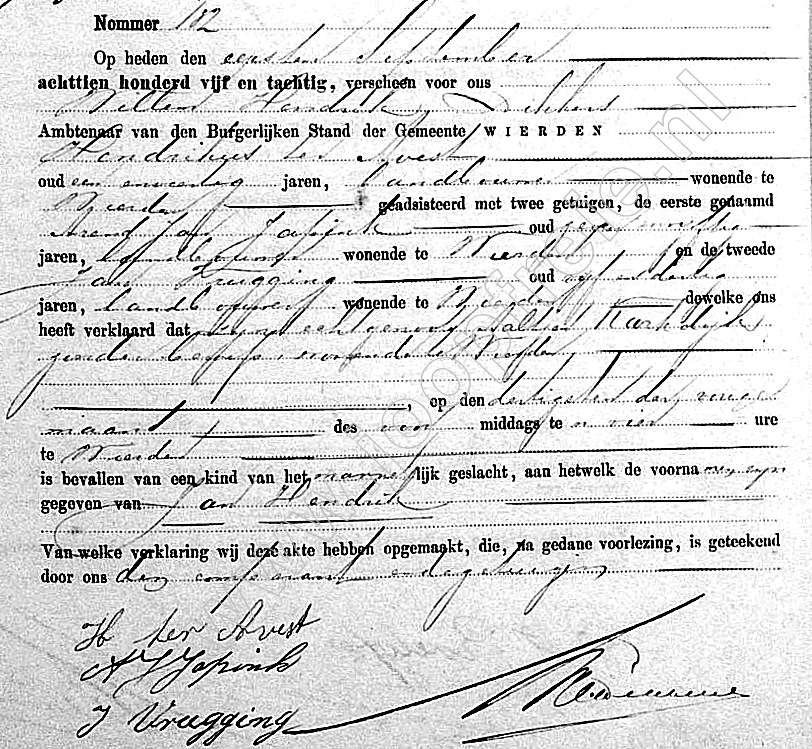 Nommer 182
Op heden den eersten September
achttien honderd vijf en tachtig, verscheen voor ons
Willem Hendrik Dikkers
Ambtenaar van den Burgerlijken Stand der Gemeente WIERDEN
Hendrikus ter Avest
oud een en veertig jaren, landbouwer wonende te
Wierden geadsisteerd met twee getuigen, de eerste genaamd
Arend Jan Japink oud
jaren, landbouwer wonende te Wierden en de tweede
Jan Vrugging oud
jaren, landbouwer wonende te Wierden dewelke ons
heeft verklaard dat zijne echtgenoot Kerkdijk,
zonder beroep, wonende te Wierden
, op den dertigsten der vorige
maand des voor middags te vier ure
te Wierden
is bevallen van een kind van het mannelijk geslacht, aan hetwelk de voornamen zijn
gegeven van Jan Hendrik
Van welke verklaring wij deze akte hebben opgemaakt, die, na gedane voorlezing, is geteekend
door ons den comparant en de getuigen
H ter Avest
A J Japink
J Vrugging
joopfreke.nl